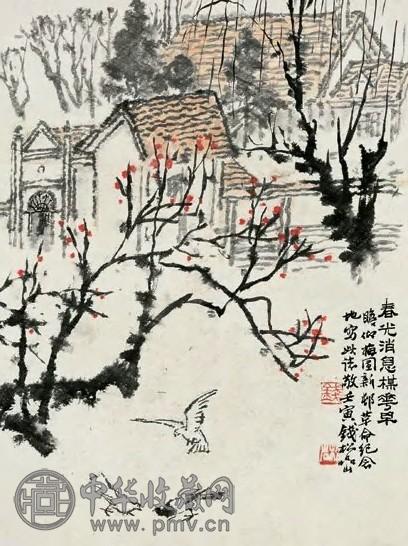 春光消息楳花早
瞻仰梅园新邨革命纪念
地写此誌敬壬寅钱松嵒
中华收藏网
www.pmv.cn